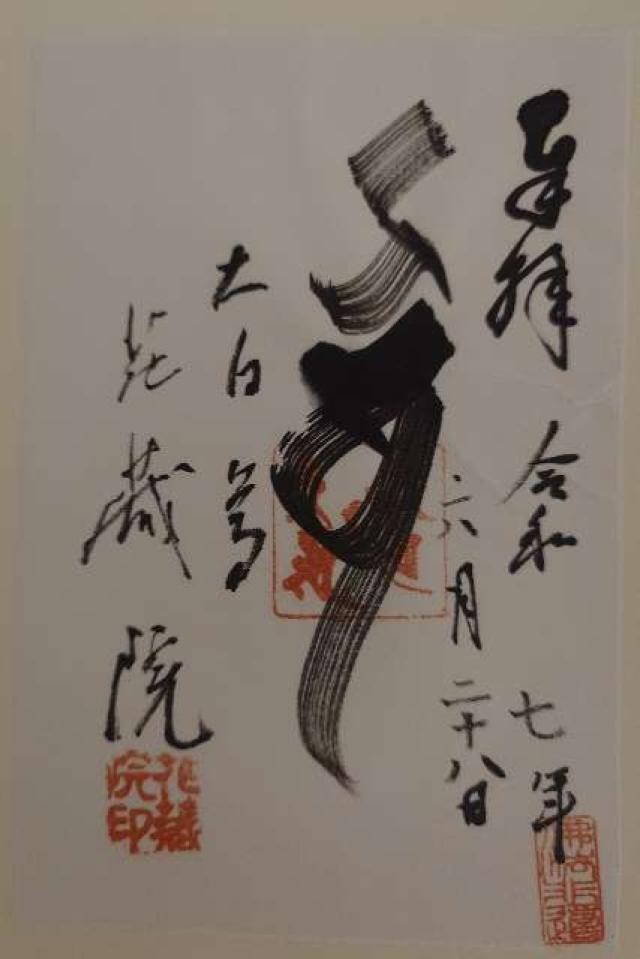 奉拝 令和七年
六月二十八日
大日
花蔵院
花蔵院印